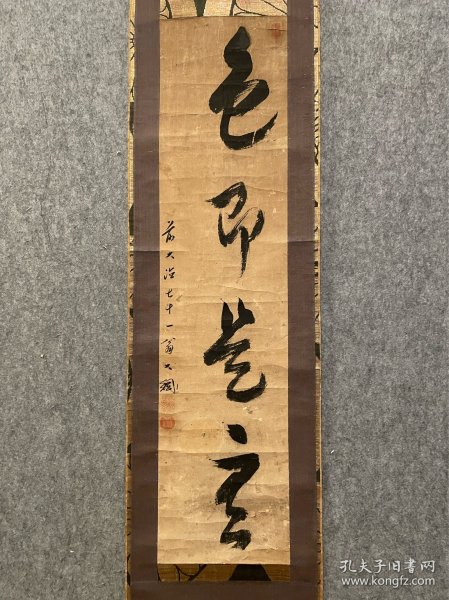 色即是空
前大德七十一翁大綱
孔夫子旧书网
www.kongfz.com